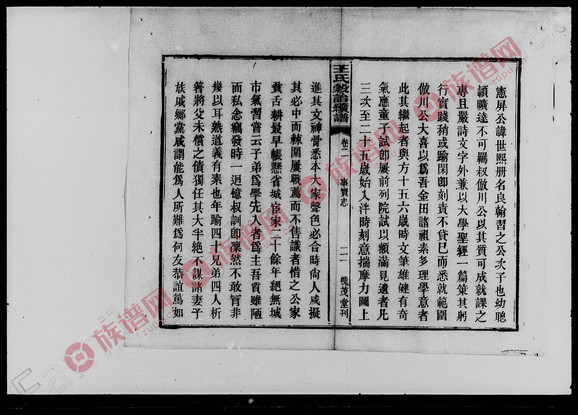 憲屏公諱世熙册名良翰習之公次子也幼聰
穎曠達不可羈叔倣川公以其質可成就課之
專且嚴詩文字外兼以大學聖經一篇策其躬
行實踐稍或踰閑即刻責不貸已而悉就範圍
倣川公大喜以爲吾金田諮祖素多理學意者
此其繼起者與方十五六歲時文筆雄健有奇
氣應童子試即屢前列院試以額滿見遺者凡
三次至二十五歲始入泮時刻意揣摩力闢上
王氏穀詒續譜
卷二
事實志
二一
懋茂堂刊
進其文神骨悉本大家聲色必合時尚人咸擬
其必中而棘闈屢戰薦而不售識者惜之公家
貴舌耕最早帳懸省城宦家二十餘年絕無城
市氣習嘗云子弟爲學先入者爲主吾賓雖陋
而私念竊發時一迴憶叔訓即凜然不敢冐非
幾以耳熟道義有素也年踰四十兄弟四人析
箸將父未償之債獨任其大半絕不謀諸妻子
族戚鄉黨咸謂能爲人所難爲何友恭誼篤如
族谱网